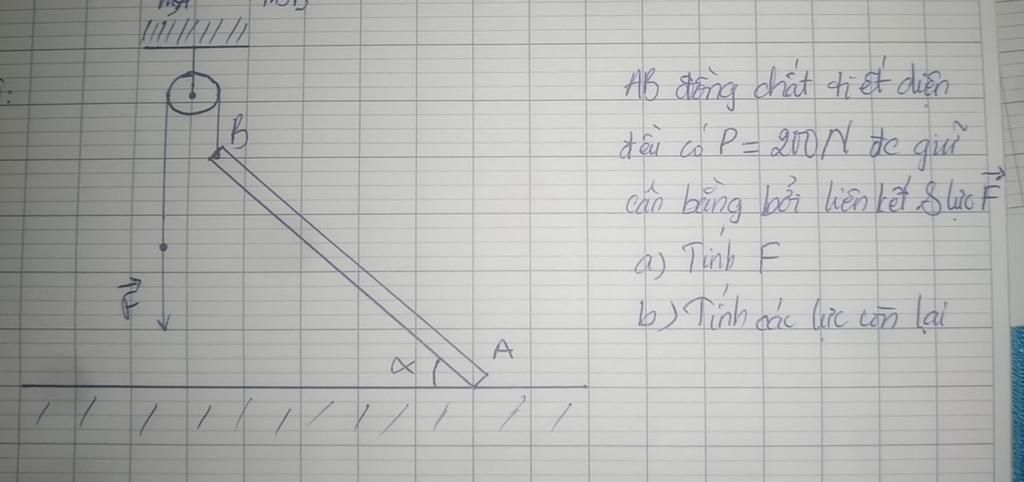 B
AB đồng chất tiết diện
đều có P = 200N đc giữ
cân bằng bởi liên kết & lực F⃗
a) Tính F
F⃗
b) Tính các lực còn lại
A
α